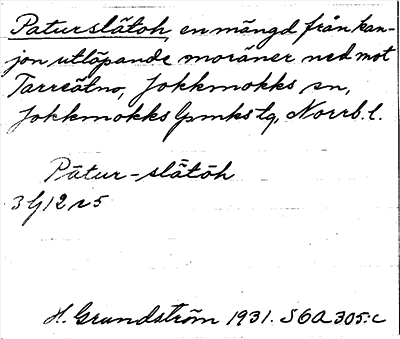 Paturslätoh, en mängd från kan-
jon utlöpande moräner ned mot
Tarreätno, Jokkmokks sn,
Jokkmokks lpmkstg, Norrb. l.
Pātur-slātoh
H. Grundström 1931. SOA 305:c